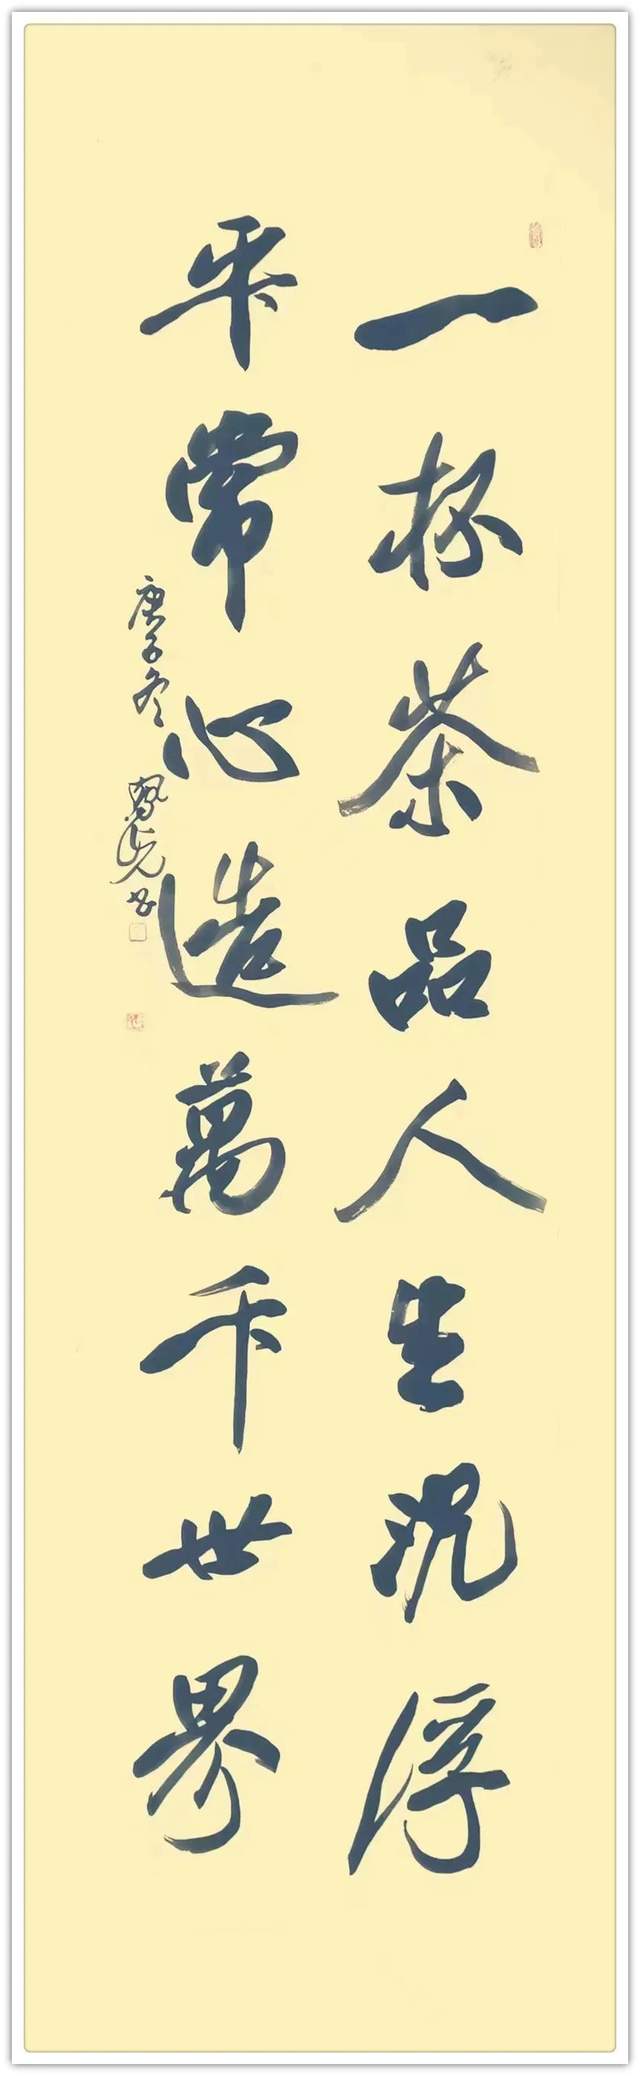 一杯茶品人生沉浮
平常心造萬千世界
庚子冬